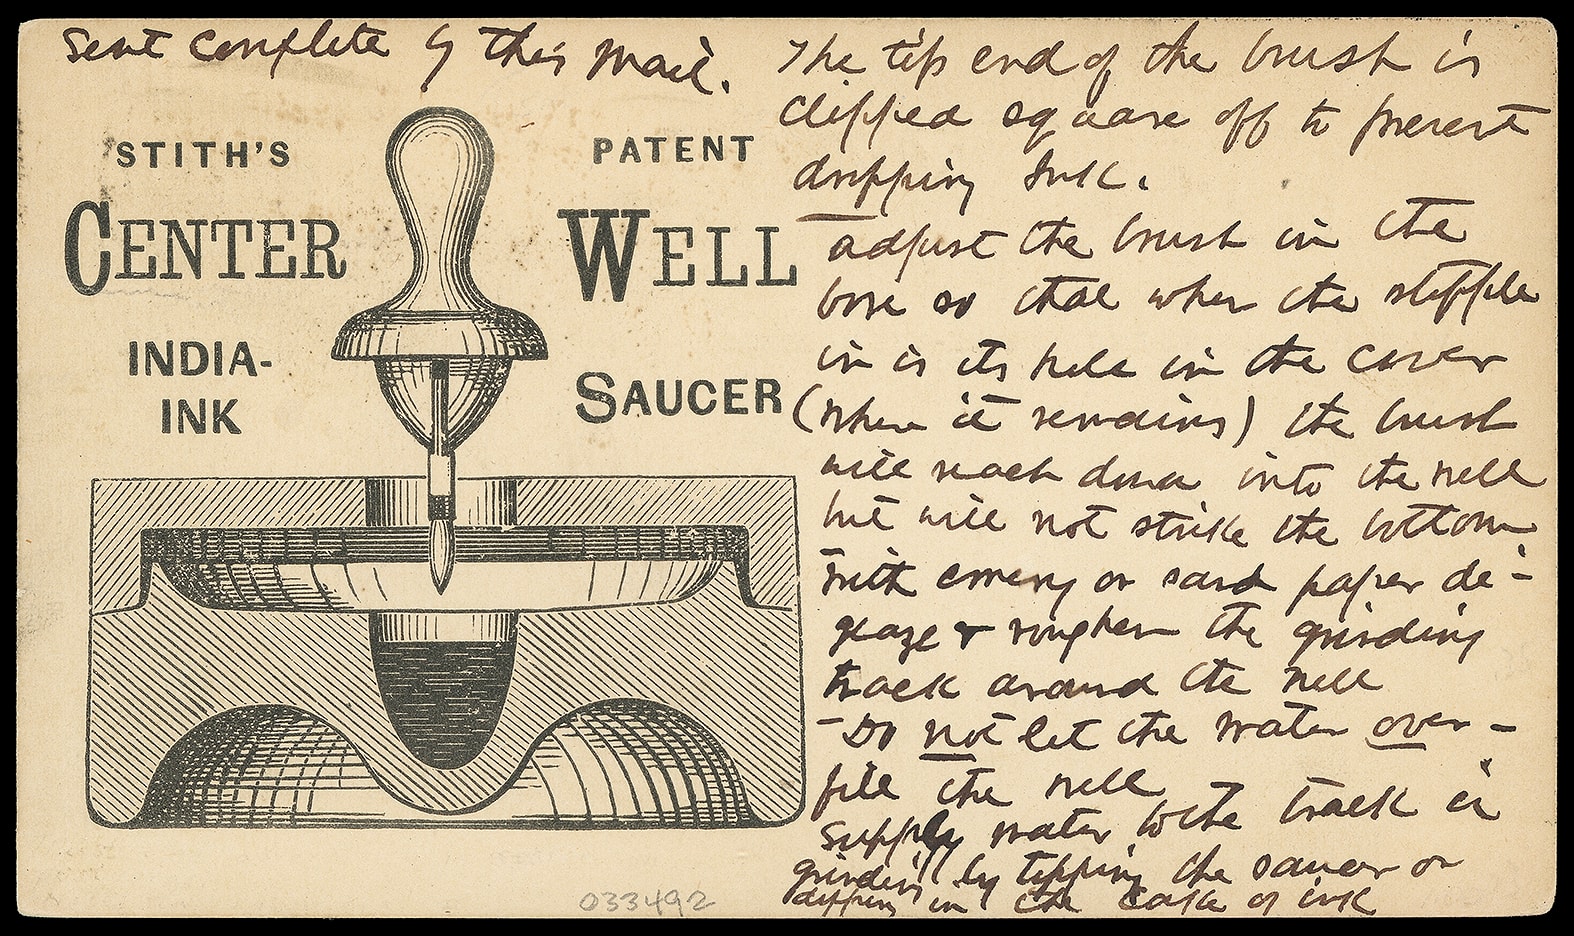 Sent complete by this mail.
STITH'S PATENT
CENTER WELL
INDIA-
INK
SAUCER
The tip end of the brush is
clipped square off to prevent
dripping Ink.
adjust the brush in the
bore so that when the stopple
in is its hole in the cover
(where it remains) the brush
will reach down into the well
but will not strike the bottom
with emery or sand paper de-
glaze & roughen the grinding
track around the well
- Do not let the water over-
fill the well
Supply water to the track in
grinding by tipping the saucer or
dipping in the cake of ink
033492